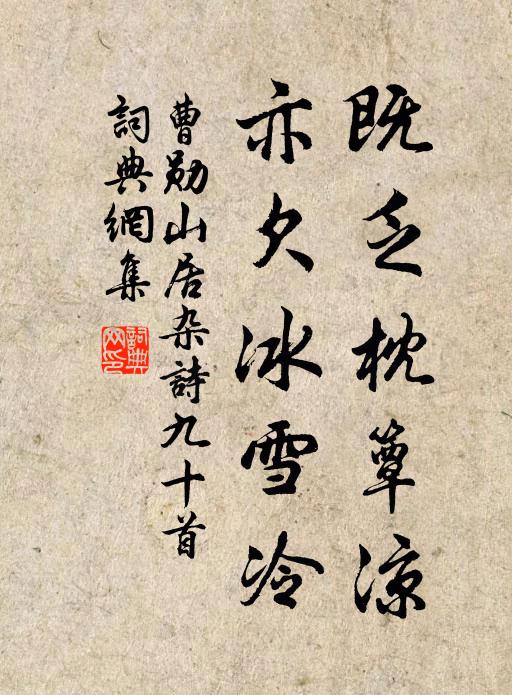 既乏枕簟凉
亦欠冰雪冷
曹勋山居杂詩九十首
詞典網集
詞典
网印